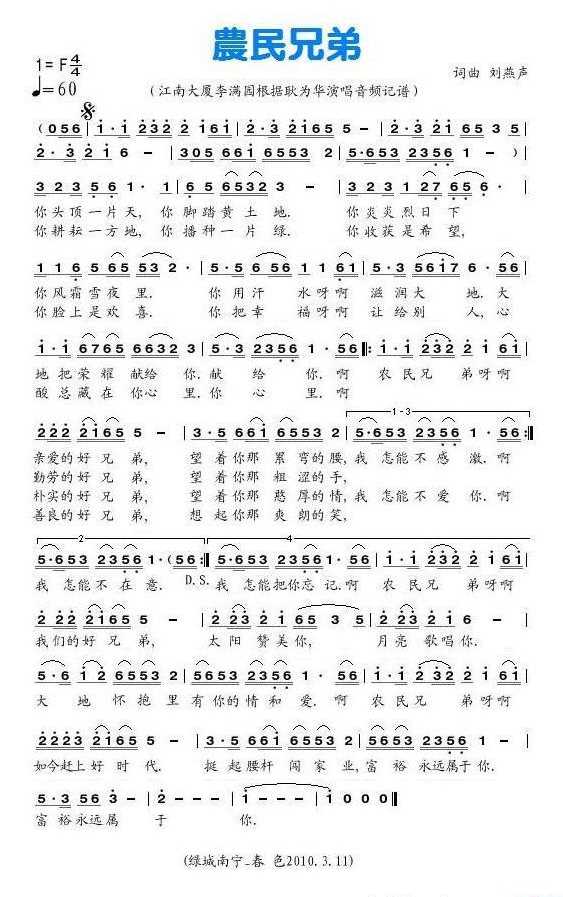 農民兄弟
1=F 4/4
♩=60
词曲 刘燕声
(江南大厦李满园根据耿为华演唱音频记谱)
(056 | 1·1 232 2 161 | 2·3 2165 5 - | 5·3 2 1 65 3 5
2· 3 2 1 6 | 305 661 6553 2 | 5·653 2356 1 - ) |
3 2 3 5 6 1· | 1 6 5 6532 - | 3 2 3 1 27 65 6· |
你头顶一片天, 你 脚踏黄 土 地. 你 炎炎 烈 日 下
你耕耘一方地, 你 播种一 片 绿. 你 收获 是 希 望,
1 1 6 5 65 53 2· | 5·5 6 56 1 1 61 | 5·3 5617 6· 56 |
你风霜雪夜 里. 你 用汗 水呀啊 滋润大 地.大
你脸上是欢 喜. 你 把幸 福呀啊 让给别 人,心
1·1 6765 6653 36 | 5·3 2356 1· 56 ‖: 1·1 232 2 1 61 |
地 把荣耀 献给 你.献 给 你. 啊 农民兄 弟呀啊
酸 总藏在 你心 里.你 心 里. 啊
222 2165 5 - | 3·5 661 6553 2 | 5·653 2356 1· 56 :‖
1-3
亲爱的好兄 弟, 望 着你那 累 弯的腰,我 怎能不 感 激.啊
勤劳的好兄 弟, 望 着你那 粗 涩的手,
朴实的好兄 弟, 望 着你那 憨 厚的情,我 怎能不 爱 你.啊
善良的好兄 弟, 想 起你那 爽 朗的笑,
2
4
5·653 2356 1·(56 :‖ 5·653 2356 1· 56 | 1·1 232 2 1 61 |
我 怎能不 在 意. D.S. 我 怎能把你忘 记.啊 农 民 兄 弟 呀啊
2 22 2165 5 - | 2 23 2 1 6 - | 2 23 2 1 6 - |
我们的好兄 弟, 太阳 赞美你, 月亮 歌唱你.
5·6 1 2 2 16 3 | 5653 2356 1· 56 | 1·1 232 2 1 61 |
大 地 怀 抱里 有你的情和 爱.啊 农民兄 弟呀啊
2223 2165 5 - | 3·5 661 6553 2 | 5 653 2356 1 - |
如今赶上好 时 代. 挺 起腰杆 闯 家 业,富 裕 永远属于 你.
5·3 56 3 - | 2 - 2 - | 1 - - - | 1 0 0 0 ‖
富 裕永远属 于 你.
(绿城南宁_春 色2010.3.11)